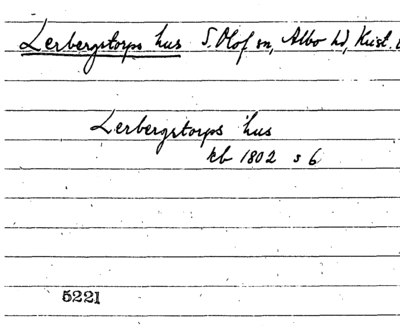 Lerbergstorps hus S. Olof sn, Albo hd, Krist.
Lerbergstorps hus
kb 1802 s 6
5221